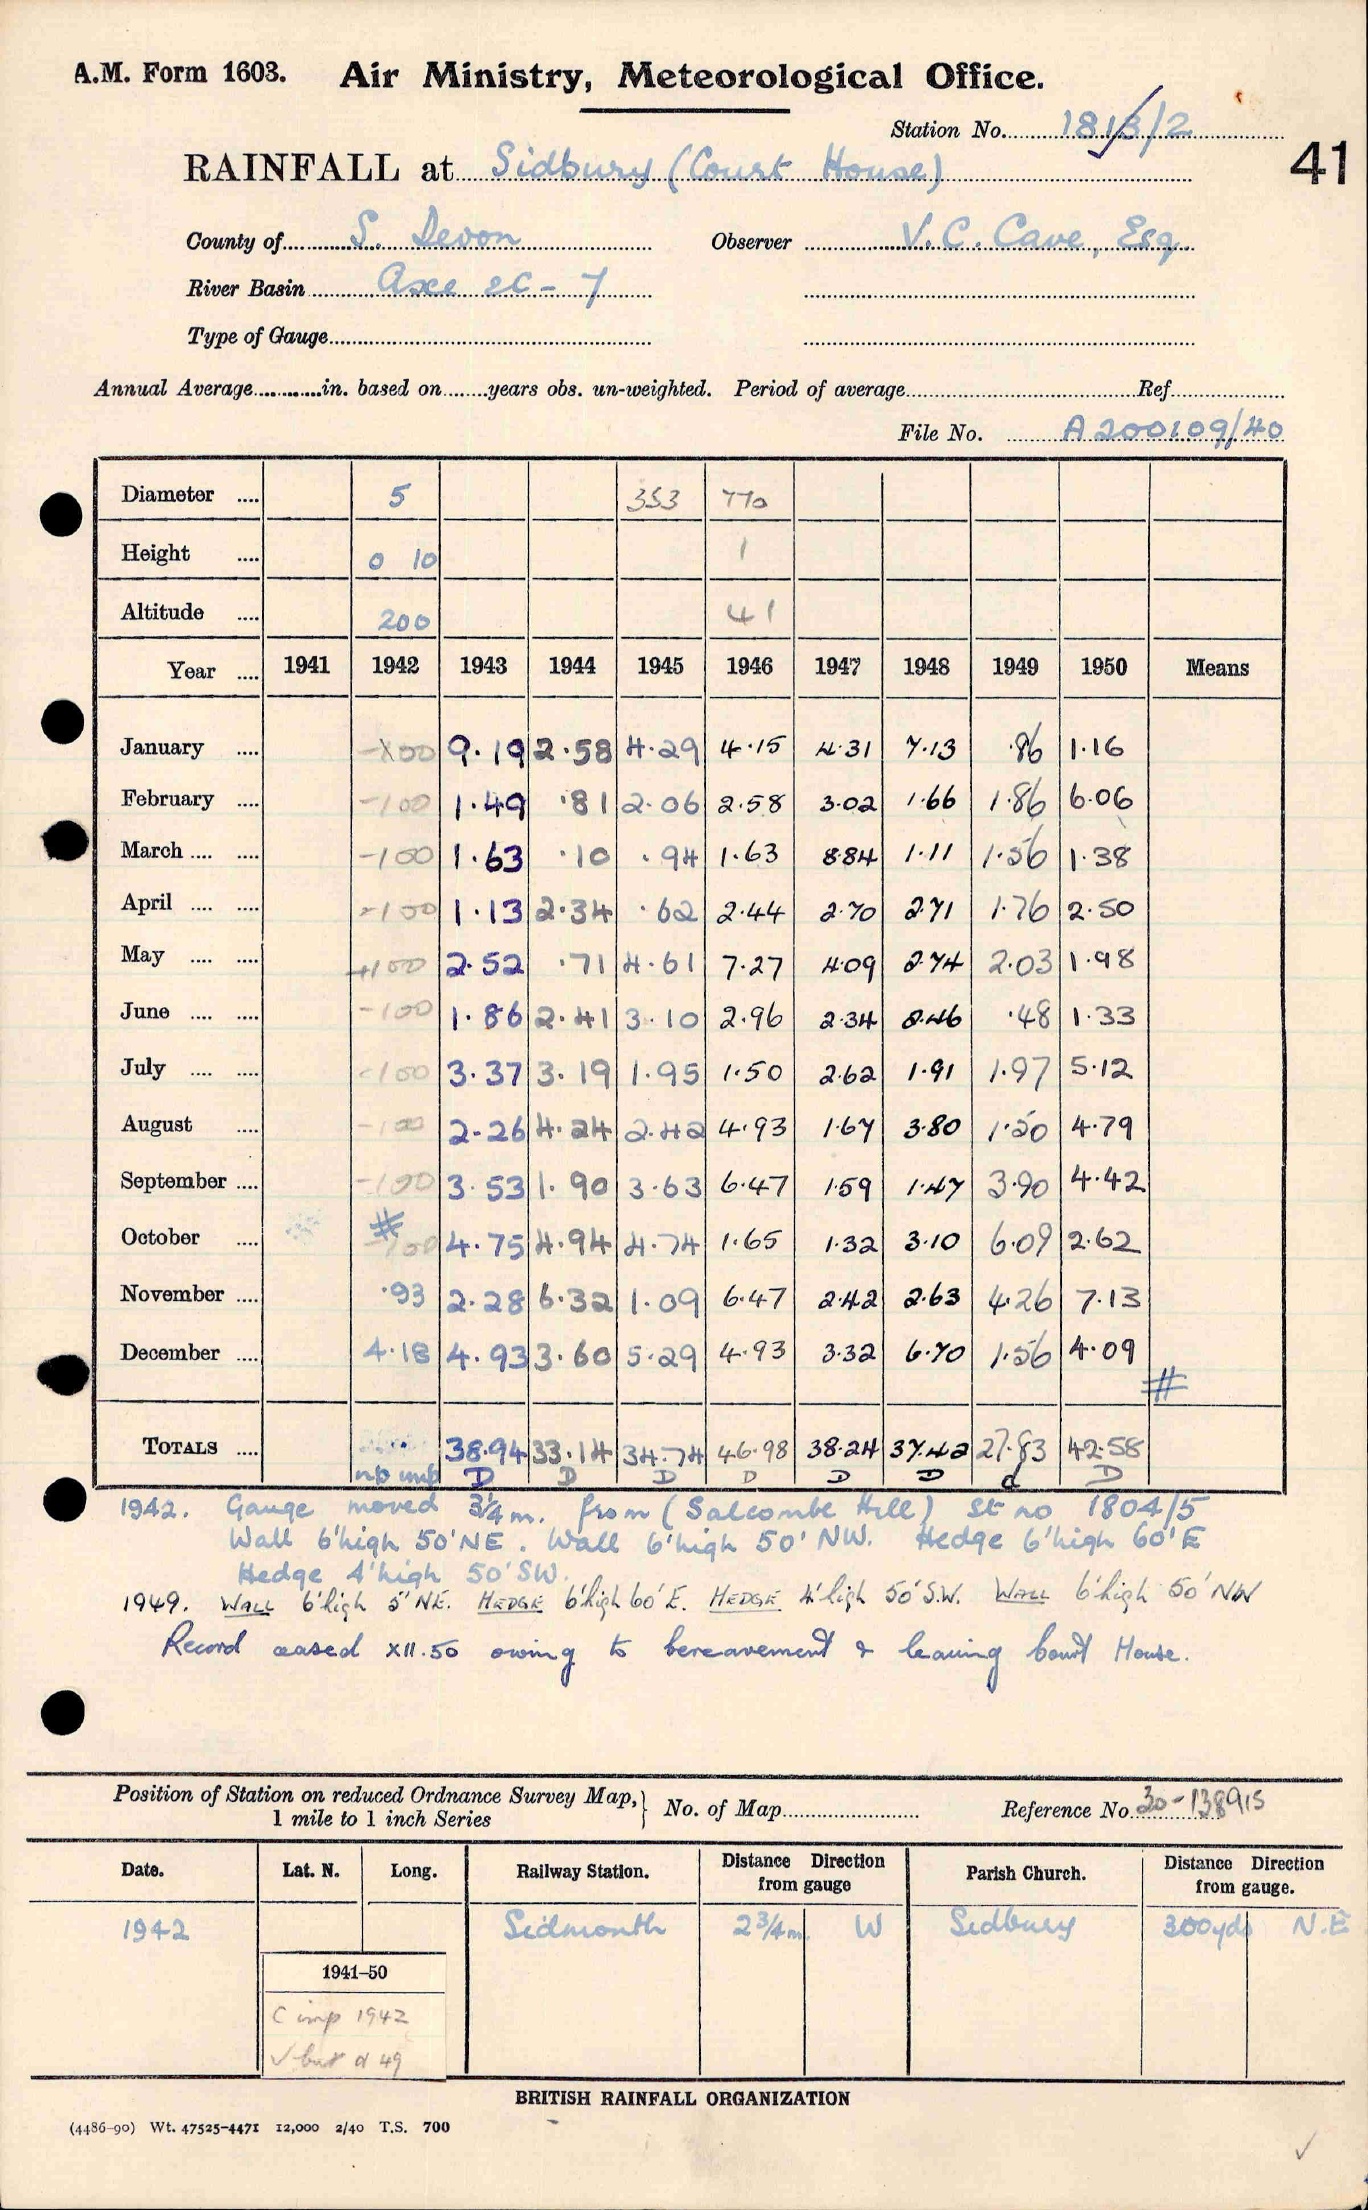 A.M. Form 1603. Air Ministry, Meteorological Office.
Station No. 1813/2
41
RAINFALL at Sidbury (Court House)
County of S. Devon Observer V.C. Cave, Esq.
River Basin Axe &c - 7
Type of Gauge
Annual Average in. based on years obs. un-weighted. Period of average Ref
File No. A200109/40
Diameter 5 353 770
Height 0 10 1
Altitude 200 41
Year 1941 1942 1943 1944 1945 1946 1947 1948 1949 1950 Means
January -100 9.19 2.58 4.29 4.15 4.31 7.13 .86 1.16
February -100 1.49 .81 2.06 2.58 3.02 1.66 1.86 6.06
March -100 1.63 .10 .94 1.63 8.84 1.11 1.56 1.38
April -100 1.13 2.34 .62 2.44 2.70 2.71 1.76 2.50
May -100 2.52 .71 4.61 7.27 4.09 2.74 2.03 1.98
June -100 1.86 2.41 3.10 2.96 2.34 2.46 .48 1.33
July -100 3.37 3.19 1.95 1.50 2.62 1.91 1.97 5.12
August -100 2.26 4.24 2.42 4.93 1.67 3.80 1.50 4.79
September -100 3.53 1.90 3.63 6.47 1.59 1.47 3.90 4.42
October # -100 4.75 4.94 4.74 1.65 1.32 3.10 6.09 2.62
November .93 2.28 6.32 1.09 6.47 2.42 2.63 4.26 7.13
December 4.18 4.93 3.60 5.29 4.93 3.32 6.70 1.56 4.09
#
TOTALS 38.94 33.14 34.74 46.98 38.24 37.42 27.83 42.58
np imp D D D D D D d D
1942. Gauge moved 3¼ m. from (Salcombe Hill) St no 1804/5
Wall 6' high 50' NE. Wall 6' high 50' NW. Hedge 6' high 60' E
Hedge 4' high 50' SW.
1949. WALL 6' high 5' NE. HEDGE 6' high 60' E. HEDGE 4' high 50' S.W. WALL 6' high 50' NW
Record ceased XII.50 owing to bereavement & leaving Court House.
Position of Station on reduced Ordnance Survey Map,
1 mile to 1 inch Series
No. of Map
Reference No. 30-138915
Date. Lat. N. Long. Railway Station. Distance Direction from gauge Parish Church. Distance Direction from gauge.
1942 Sidmouth 2¾ m. W Sidbury 300yds N.E
1941-50
C imp 1942
✓ but d 49
BRITISH RAINFALL ORGANIZATION
(4486-90) Wt. 47525-4471 12,000 2/40 T.S. 700
✓